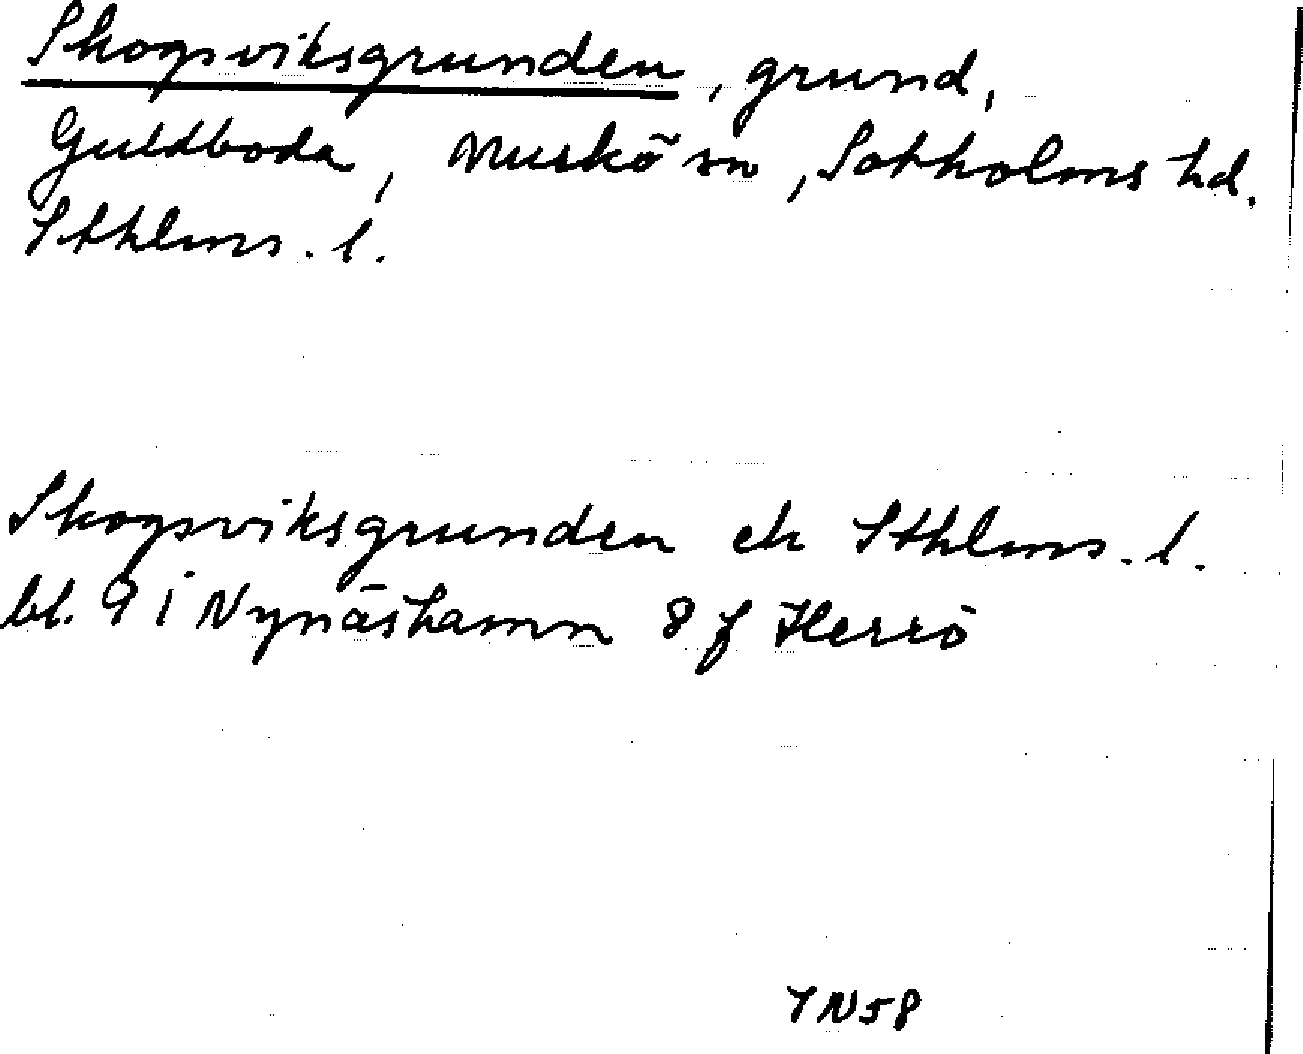 Skogsviksgrunden, grund,
Guldboda, Muskö sn, Sotholms hd.
Sthlms. l.
Skogsviksgrunden ek Sthlms. l.
bl. 9 i Nynäshamn 8 f Herrö
YN58